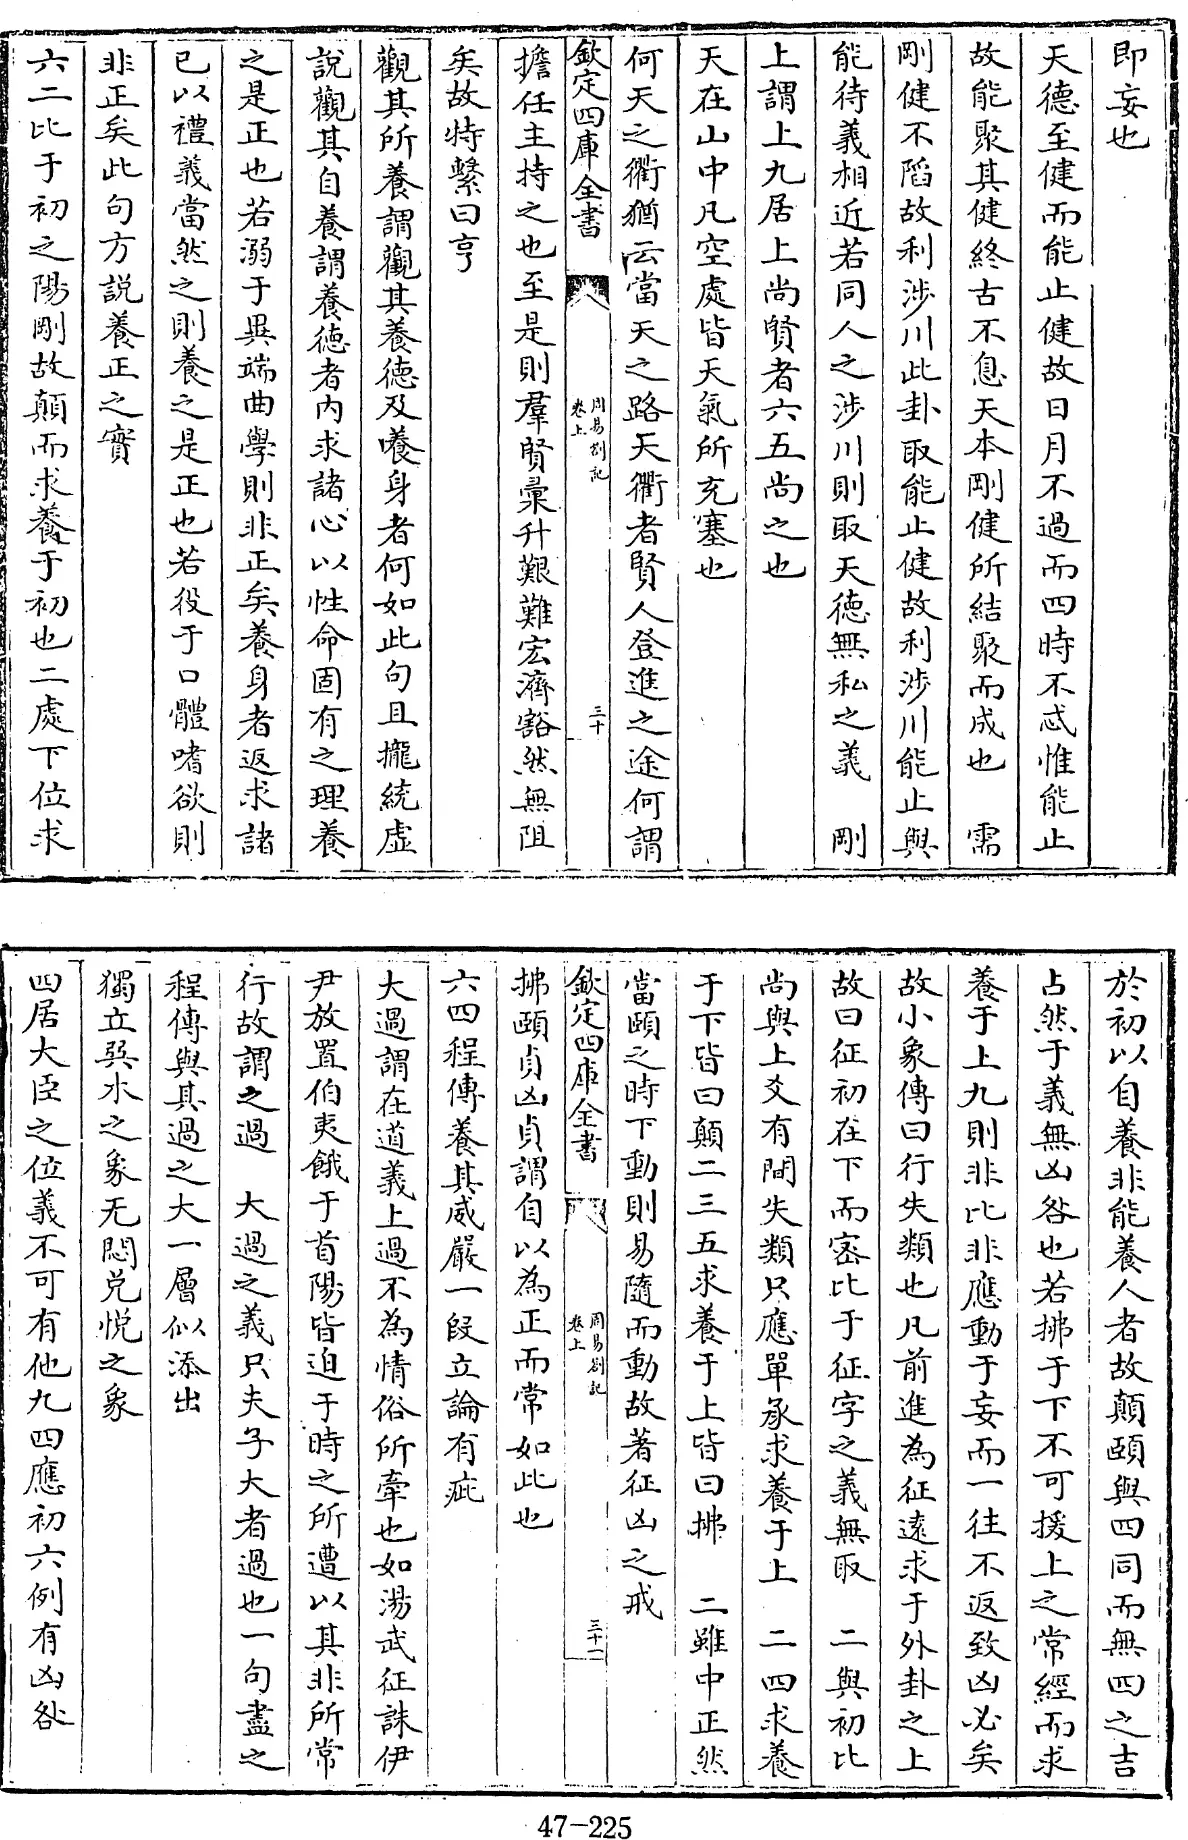 即妄也
天德至健而能止健故日月不過而四時不忒惟能止
故能聚其健終古不息天本剛健所結聚而成也　需
剛健不陷故利涉川此卦取能止健故利涉川能止與
能待義相近若同人之涉川則取天德無私之義　剛
上謂上九居上尚賢者六五尚之也
天在山中凡空處皆天氣所充塞也
何天之衢猶云當天之路天衢者賢人登進之途何謂
欽定四庫全書
周易劄記
卷上
三十
擔任主持之也至是則羣賢彙升艱難宏濟豁然無阻
矣故特繫曰亨
觀其所養謂觀其養德及養身者何如此句且攏統虛
說觀其自養謂養德者內求諸心以性命固有之理養
之是正也若溺于異端曲學則非正矣養身者返求諸
已以禮義當然之則養之是正也若役于口體嗜欲則
非正矣此句方説養正之實
六二比于初之陽剛故顛而求養于初也二處下位求
於初以自養非能養人者故顛頤與四同而無四之吉
占然于義無凶咎也若拂于下不可援上之常經而求
養于上九則非比非應動于妄而一往不返致凶必矣
故小象傳曰行失類也凡前進為征遠求于外卦之上
故曰征初在下而密比于征字之義無取　二與初比
尚與上爻有間失類只應單承求養于上　二四求養
于下皆曰顛二三五求養于上皆曰拂　二雖中正然
當頤之時下動則易隨而動故著征凶之戒
欽定四庫全書
周易劄記
卷上
三十一
拂頤貞凶貞謂自以為正而常如此也
六四程傳養其威嚴一段立論有疵
大過謂在道義上過不為情俗所牽也如湯武征誅伊
尹放置伯夷餓于首陽皆迫于時之所遭以其非所常
行故謂之過　大過之義只夫子大者過也一句盡之
程傳與其過之大一層似添出
獨立巽木之象无悶兌悅之象
四居大臣之位義不可有他九四應初六例有凶咎
47-225